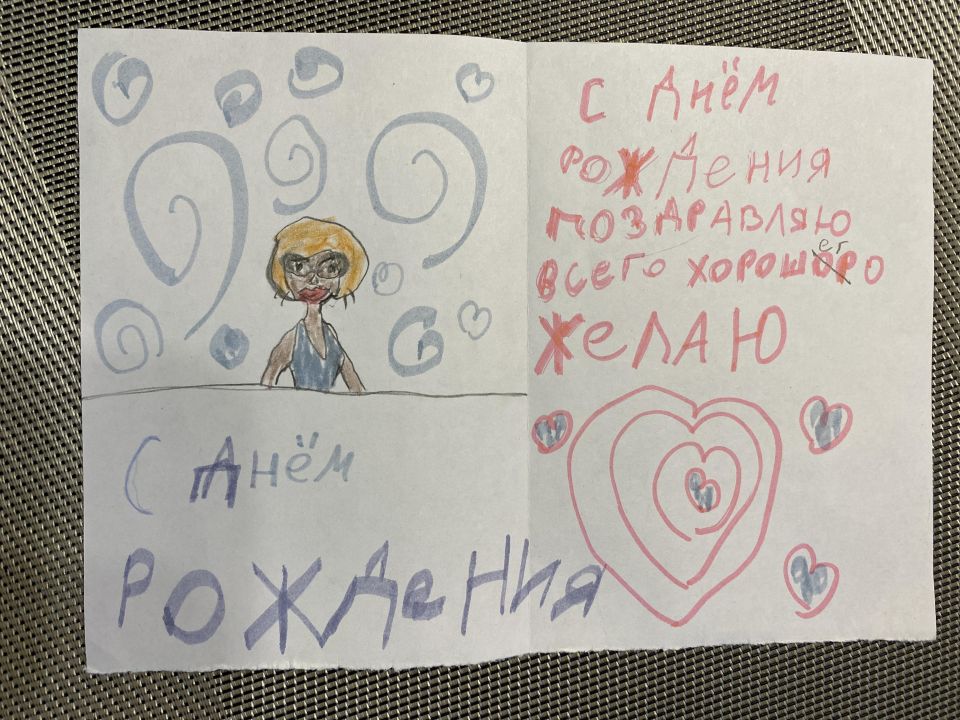 С ДНЁМ
РОЖДЕНИЯ
С ДНЁМ
РОЖДЕНИЯ
ПОЗДРАВЛЯЮ
ВСЕГО ХОРОШЕГО
ЖЕЛАЮ